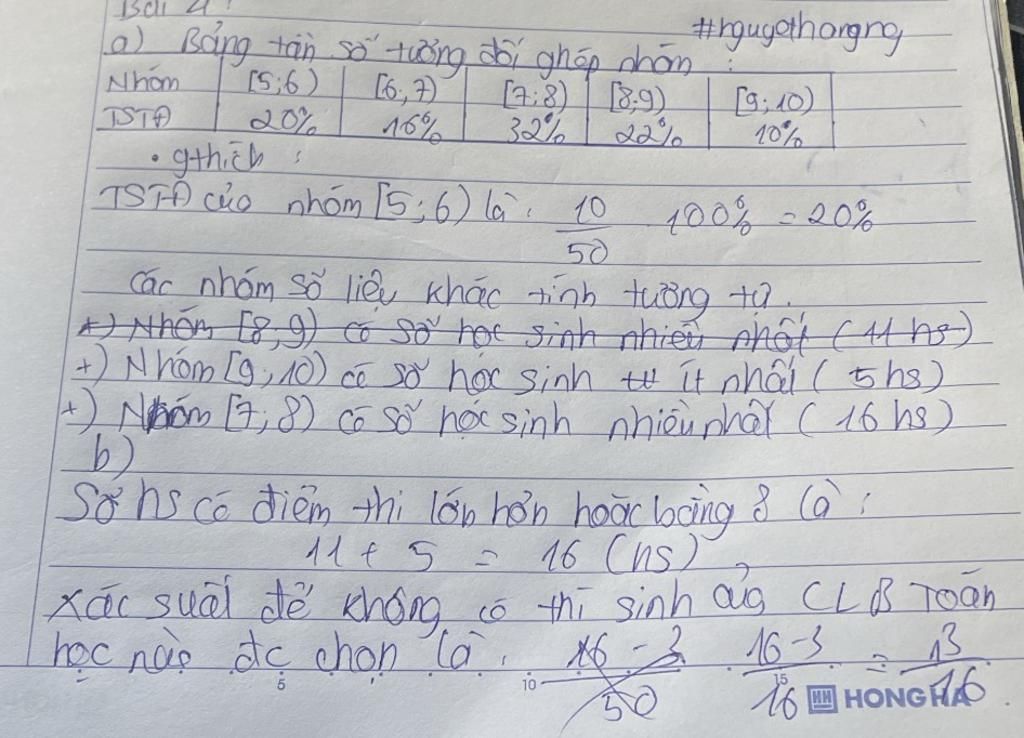 Bài 4:
#nguyethongng
a) Bảng tần số tương đối ghép nhóm :
Nhóm [5;6) [6;7) [7;8) [8;9) [9;10)
TSTĐ 20% 16% 32% 22% 10%
• gthích :
TSTĐ của nhóm [5;6) là : 10/50 100% = 20%
Các nhóm số liệu khác tính tương tự.
+) Nhóm [8;9) có số học sinh nhiều nhất (11 hs)
+) Nhóm [9;10) có số học sinh ít nhất (5 hs)
+) Nhóm [7;8) có số học sinh nhiều nhất (16 hs)
b)
Số hs có điểm thi lớn hơn hoặc bằng 8 là :
11 + 5 = 16 (hs)
Xác suất để không có thí sinh của CLB Toán
học nào đc chọn là : 16 - 3/50 16-3/16 = 13/16
5 10 15 HH HONG HA